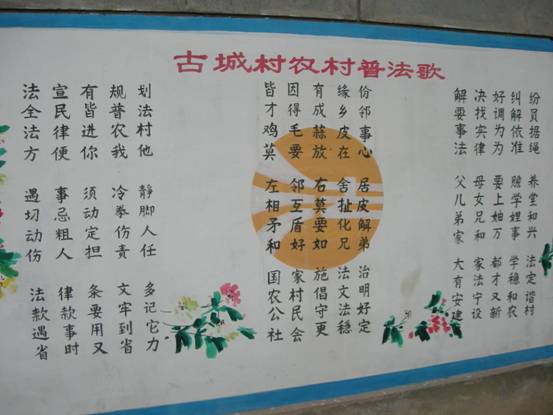 古城村农村普法歌
法宣有规划
全民皆普法
法律进农村
方便你我他
遇事须冷静
切忌动拳脚
动粗定伤人
伤人担责任
法律条文多
款款要牢记
遇事用到它
省时又省力
皆因有缘份
才得成乡邻
鸡毛蒜皮事
莫要放在心
左邻右舍居
相互莫扯皮
矛盾要化解
和好如兄弟
国家施法治
农村倡文明
公民守法好
社会更稳定
解决好纠纷
要找调解员
事实为依据
法律为准绳
父母要赡养
儿女上学堂
弟兄妯娌和
家和万事兴
大家都学法
有法才稳定
安宁又和谐
建设新农村